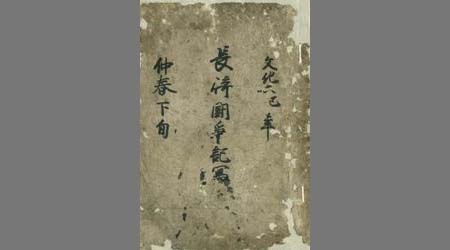 文化六巳年
長崎闘争記寫
仲春下旬